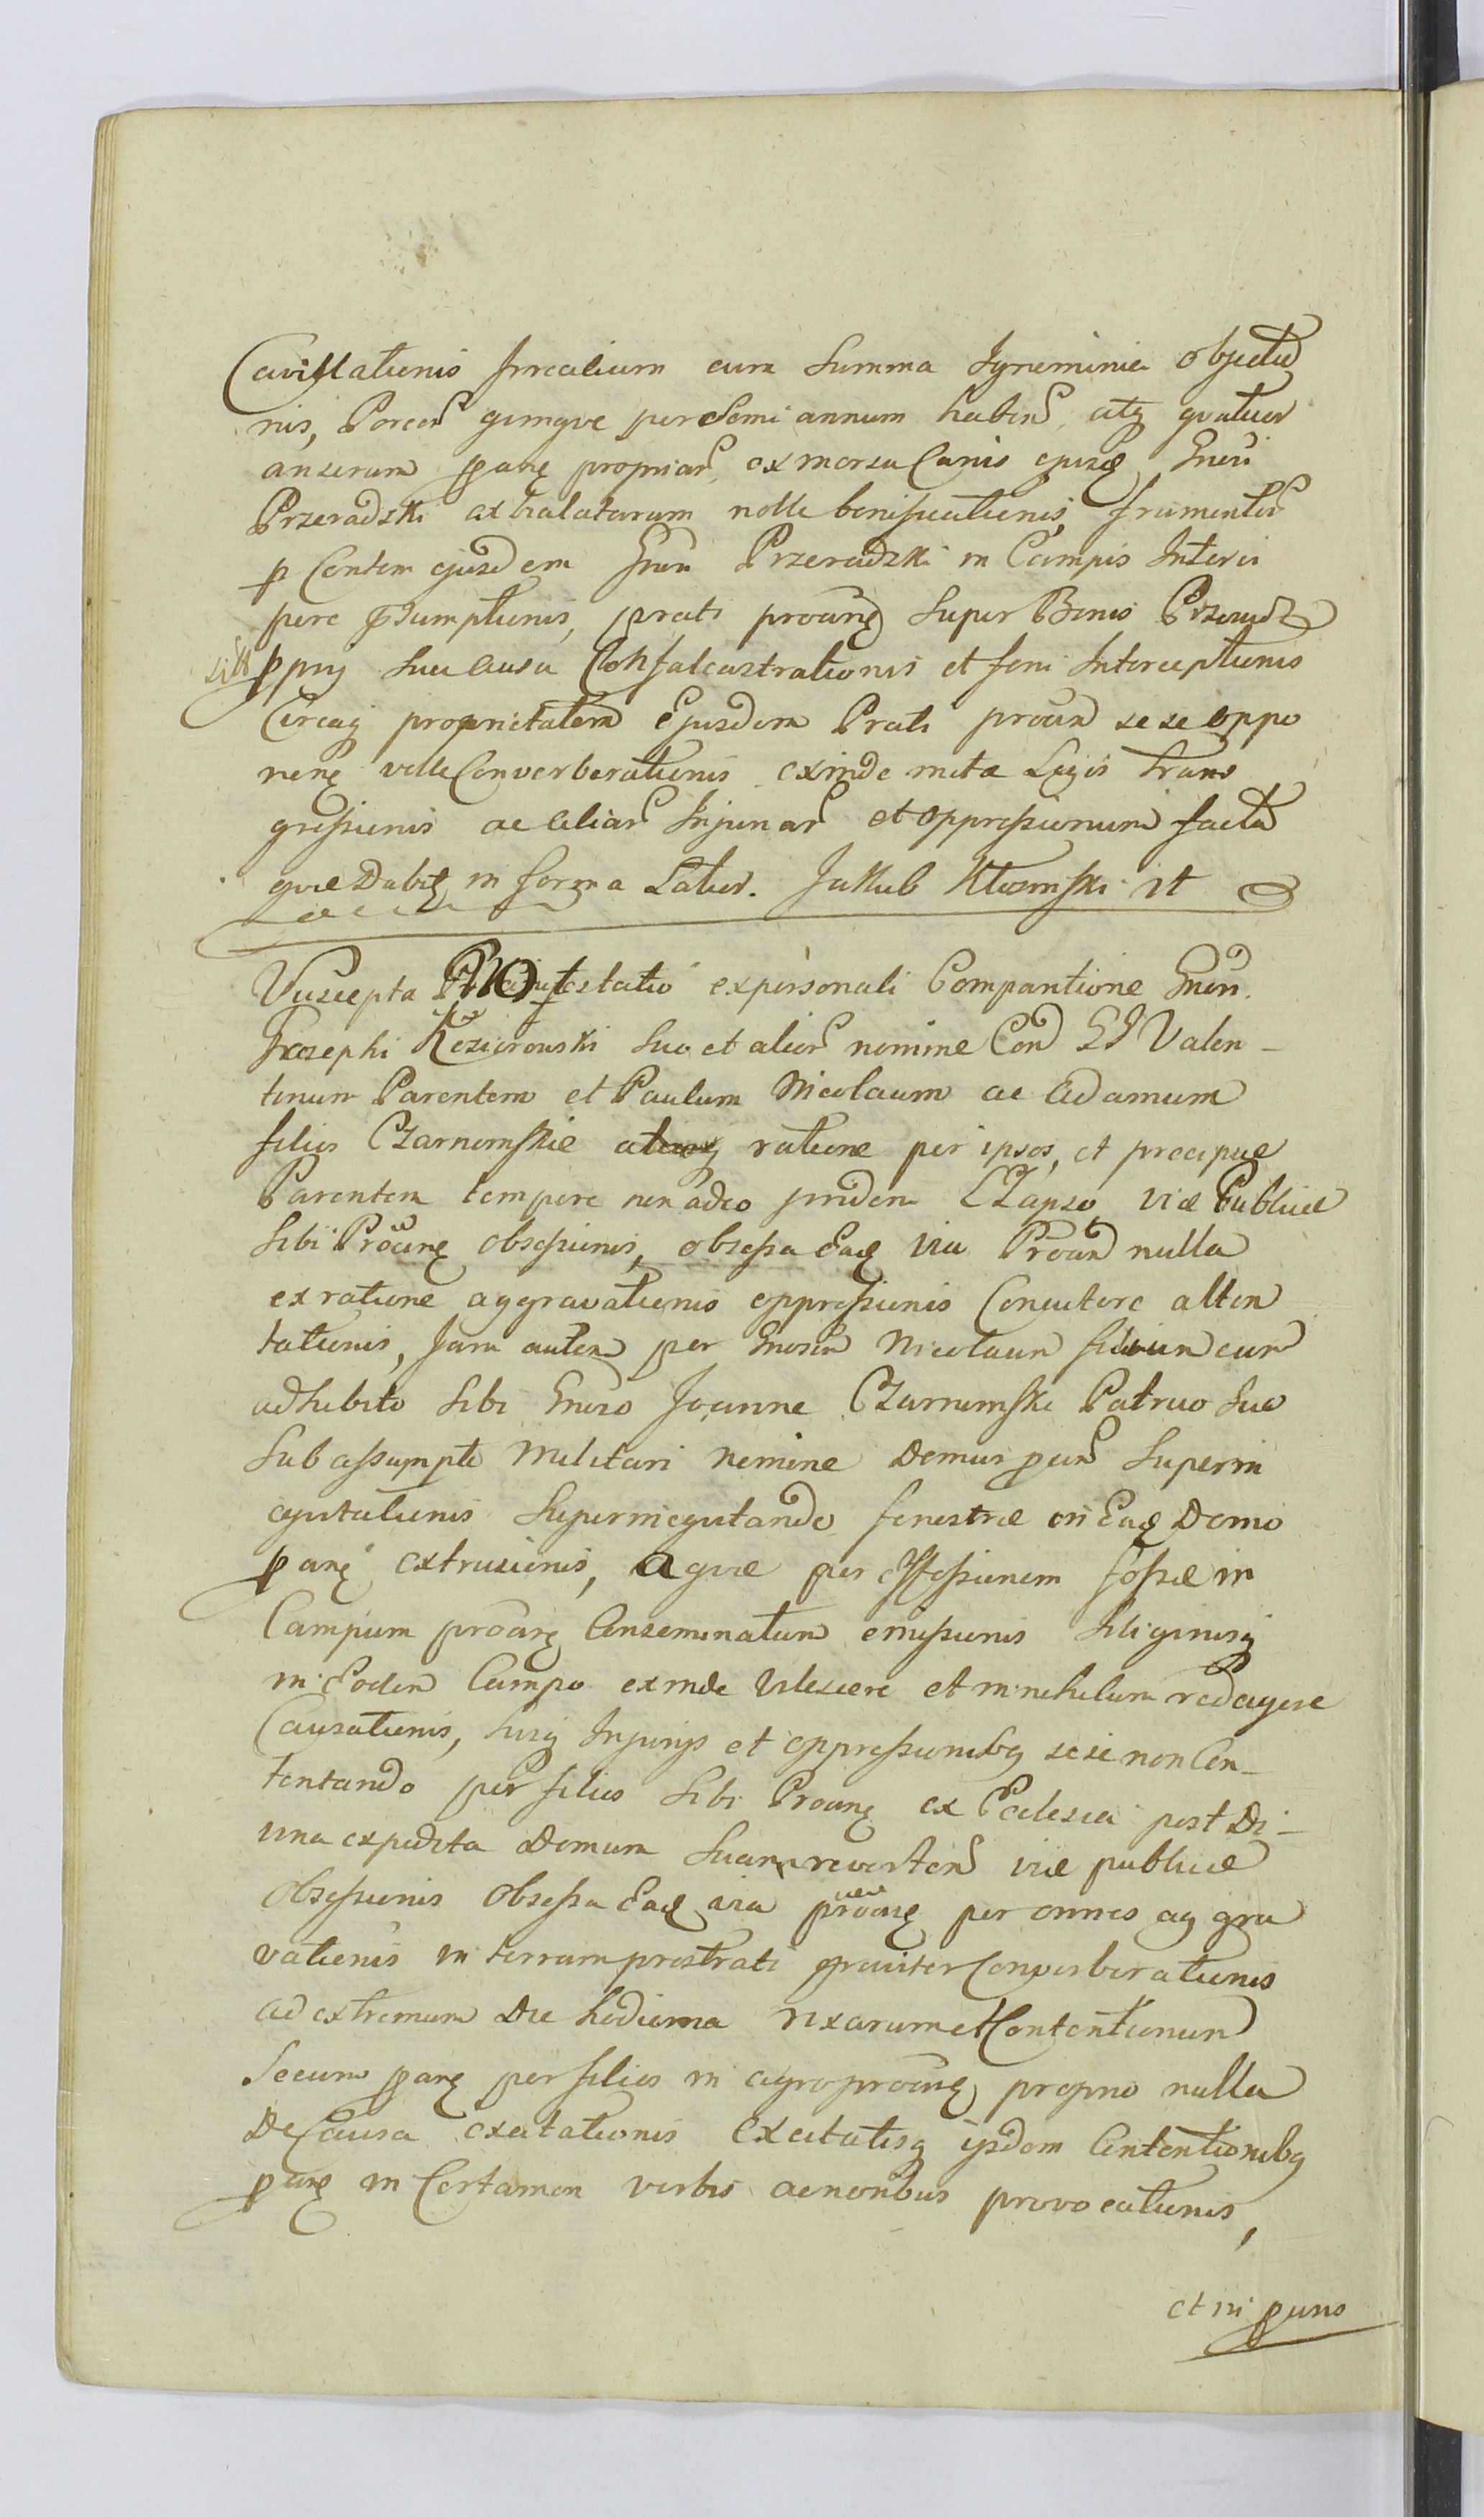 Cavillationis Srrealium cum Summa Ignominia objectio
nis, Porcor quinque per Semi annum haben, atq quatuor
anserum ptane propriar, ex morsu Canis ejusde Gnosi
Przeradzki extralatarum nolle bonificationis, frumentor
p Contem ejusdem Gnosi Przeradzki in Campis Interci
pere psumptionis, prati protane Super Bonis Przeradz
ppry sua causa Confalcastrationis et feni Interceptionis
Circaq proprietatem Ejusdem Prati protan sese oppo
nene velle Converberationis exinde metae Legis trans
gressionis ac aliar Injuriar et oppressionum facta
quae Dabit in forma Latior. Jakub Kłomski it
Suscepta Protestatio ex personali Comparitione Gnosi
Josephi Kęziorowski suo et alior nomine Con GG Valen-
tinum Parentem et Paulum Nicolaum ac Adamum
filios Czarnomskie ratione per ipsos, et praecipue
Parentem tempore non adeo pridem Elapso viae Publicae
sibi Protane obsessionis, obsessa Eade via Protan nulla
ex ratione aggravationis oppressionis Concutere atten
tationis, Jam autem per Gnosum Nicolaum filium cum
adhibito sibi Gnoso Joanne Czarnomski Patruo suo
Sub assumpto Militari nomine Domus ptan Superin
equitationis Superinequitando fenestrae in Eade Domo
ptane extrusionis, aquae per Effossionem fossae in
Campum protane Conseminatum emissionis siliginisq
in Eodem Campo exinde vilescere et in nihilum redagere
Causationis, hisq Injurijs et oppressionibq sese non Con-
tentando per filios sibi Protane ex Ecclesia post Di-
vina expedita Domum suam reverten viae publicae
Obsessionis Obsessa Eade via protane per omnes aggra
vationis in terram prostrati graviter Converberationis
ad extremum Die hodierna rixarum et Contentionum
Secum ptane per filios in agro protane proprio nulla
De Causa excitationis Excitatisq ijsdem Contentionibq
ptane in Certamen verbis acrioribus provocationis,
et in ptano